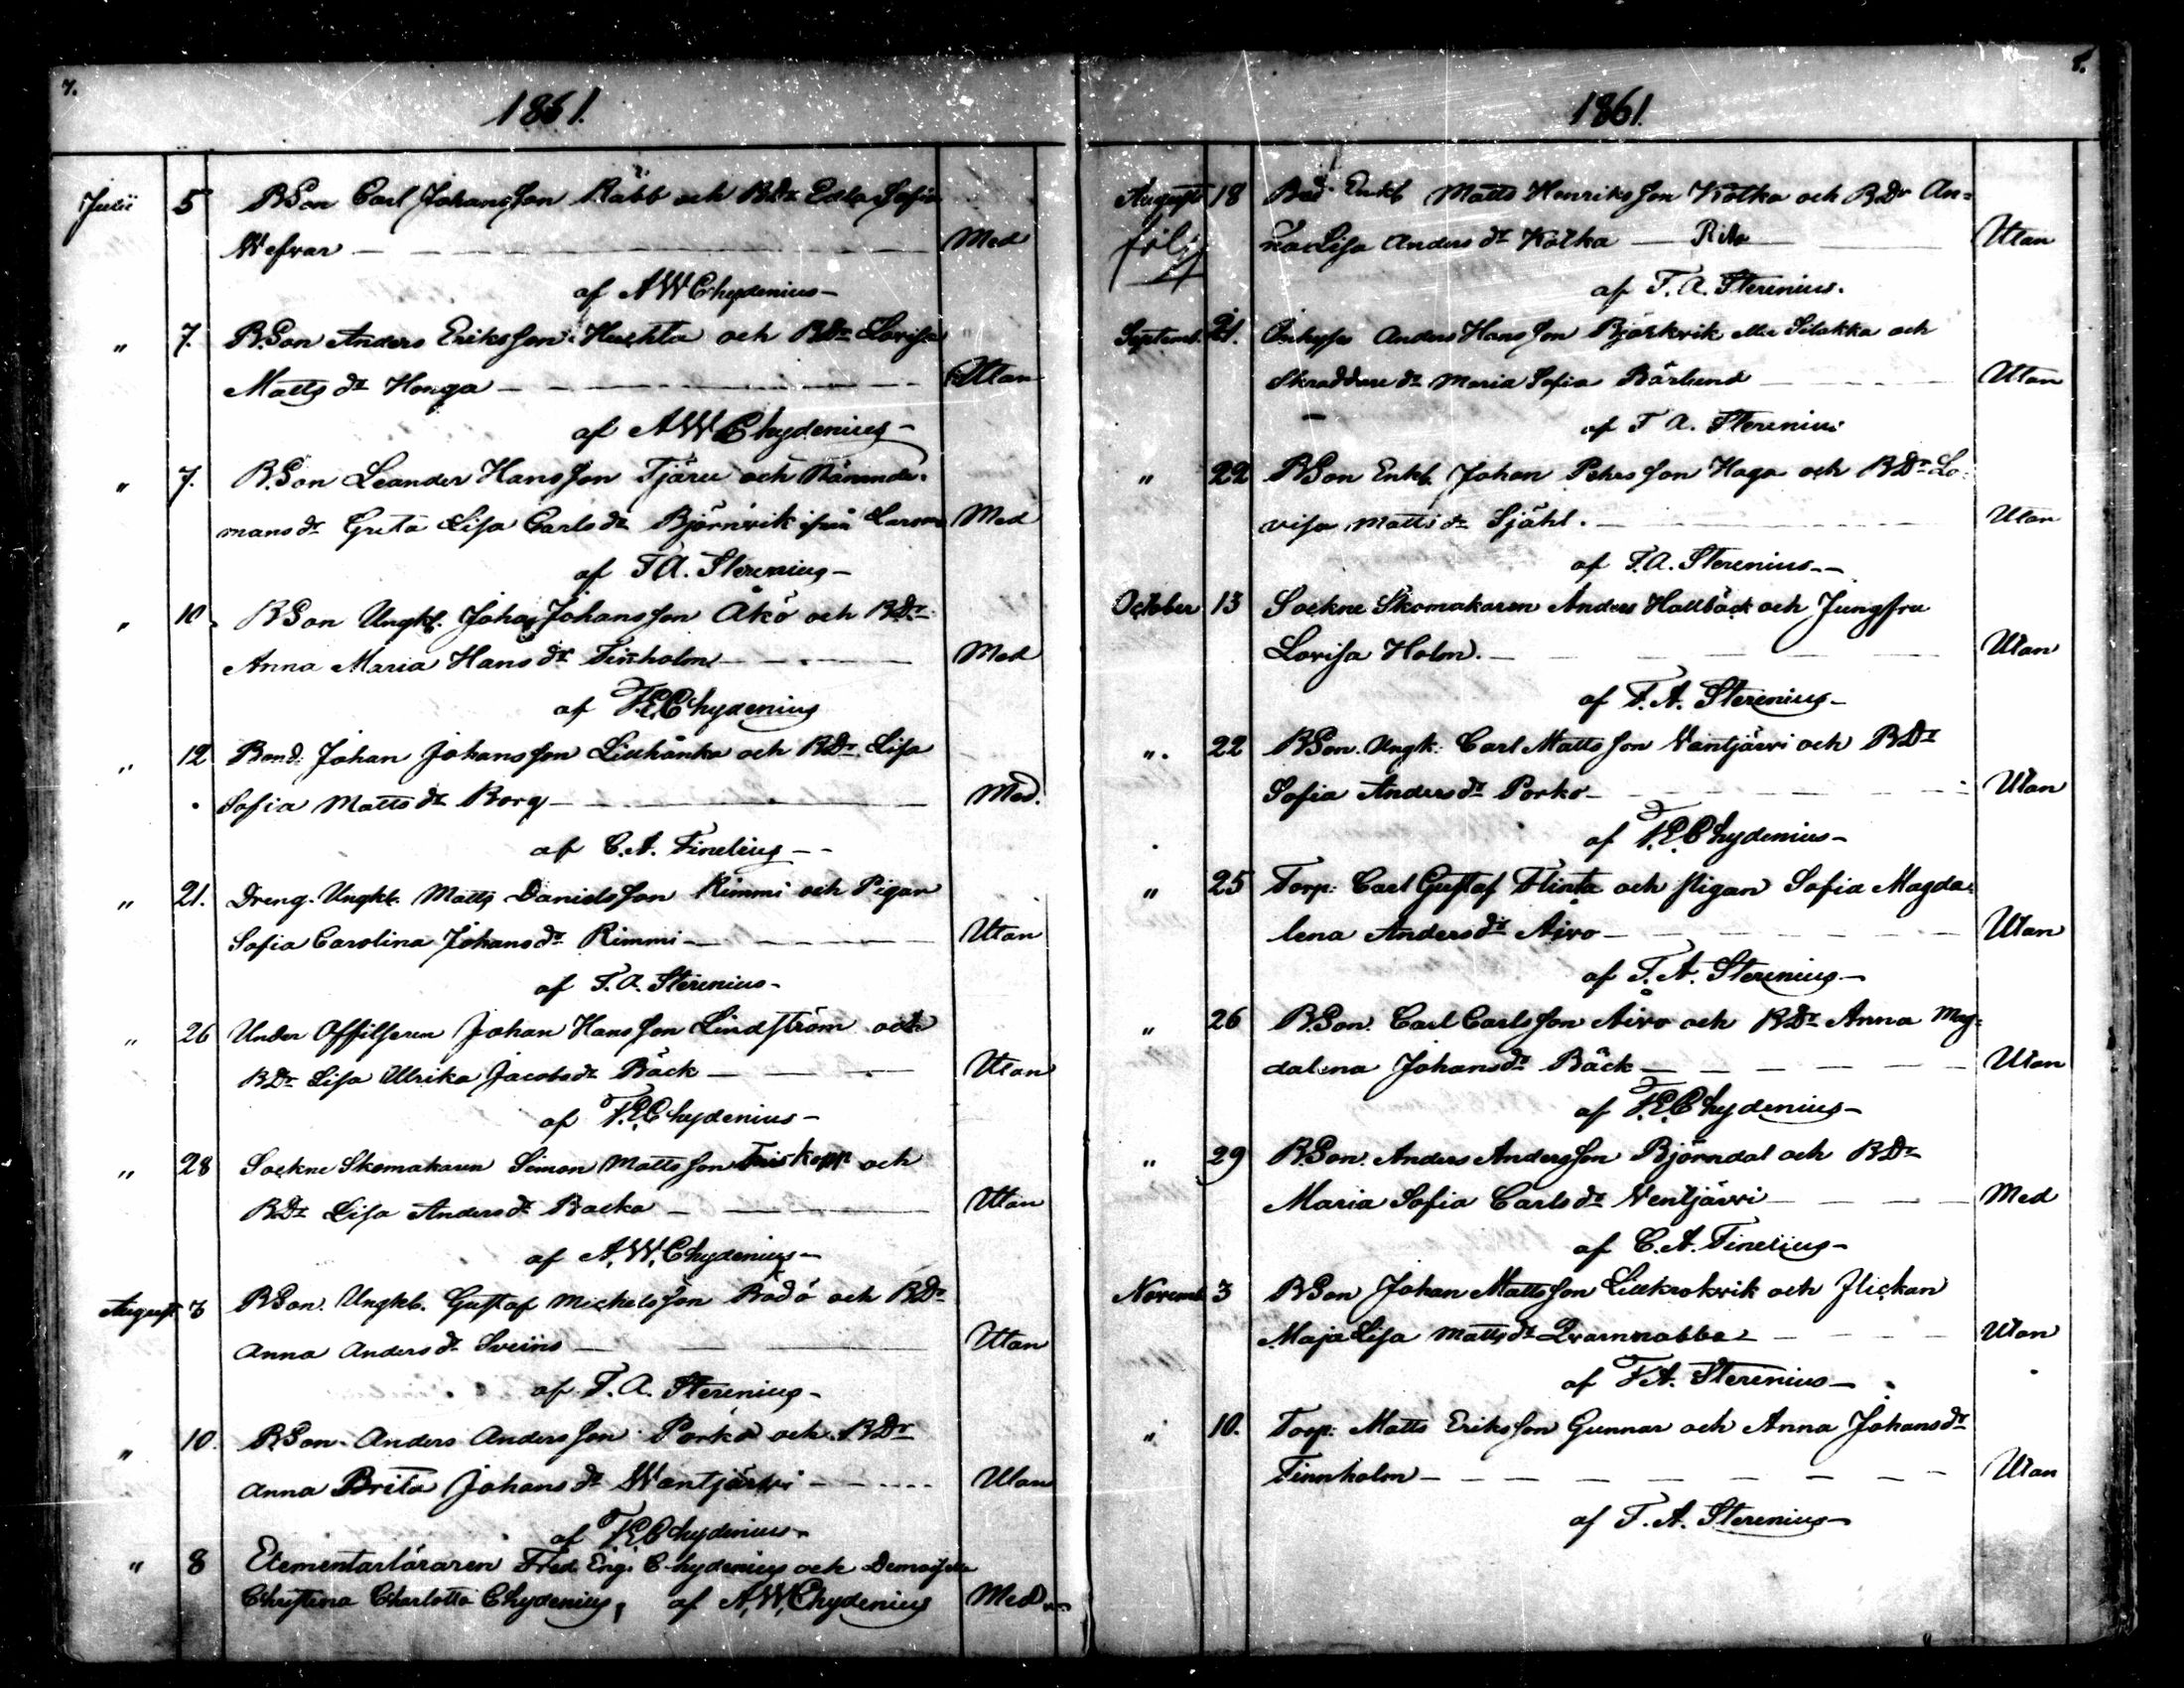 7.
1861.
Julii 5 BSon Carl Johansson Rabb och BDr Edla Sofia
Wefvar Med
af AWChydenius
" 7. B.Son Anders Eriksson Huchta och BDr Lovisa
Matts dr Honga Utan
af AWChydenius
" 7. B.Son Leander Hansson Tjäru och Nämnde-
mans dr Greta Lisa Carls dr Björnvik ifrån Larsmo Med
af F.A. Sterenius
" 10. BSon Ungk. Johan Johansson Åkö och BDr
Anna Maria Hans dr Finholm Med
af F.E.Chydenius
" 12 Bond. Johan Johansson Lillhånka och BDr Lisa
Sofia Matts dr Borg Med.
af C.A. Finelius
" 21. Dreng. Ungk. Matts Danielsson Rimmi och Pigan
Sofia Carolina Johans dr Rimmi Utan
af F.A. Sterenius
" 26 Under Officeren Johan Hansson Lindström och
BDr Lisa Ulrika Jacobs dr Bäck Utan
af F.E.Chydenius
" 28 Sockne Skomakaren Simon Mattsson och
BDr Lisa Anders dr Backa Utan
af A.W.Chydenius
August. 3 BSon. Ungk. Gustaf Michelsson Bodö och BDr
Anna Anders dr Sveins Utan
af F.A. Sterenius
" 10. BSon. Anders Andersson Porko och BDr
Anna Brita Johans dr Wantjärvi Utan
af F.E.Chydenius
" 8 Elementarläraren Fred. Eng. Chydenius och Demoiselle
Christina Charlotta Chydenius, af A.W.Chydenius Med
8.
1861.
August 18 Enkl. Matts Henriksson Kotka och BDr An-
na Lisa Anders dr Kotka Utan
af F.A. Sterenius.
Septemb. 21. Inhyses Anders Hansson Björkvik eller Silakka och
Skraddare dr Maria Sofia Bärlund Utan
af F A. Sterenius
" 22 BSon Enkl. Johan Pehrsson Haga och BDr Lo-
visa Matts dr Sjähl. Utan
af F.A. Sterenius
October 13 Sockne Skomakaren Anders Hallbäck och Jungfru
Lovisa Holm. Utan
af F.A. Sterenius
" 22 BSon. Ungk. Carl Mattsson Wantjärvi och BDr
Sofia Anders dr Porko Utan
af F.E.Chydenius
" 25 Torp: Carl Gustaf Flinta och pigan Sofia Magda-
lena Anders dr Aivo Utan
af F.A. Sterenius
" 26 B.Son. Carl Carlsson Aivo och BDr Anna Mag-
dalena Johans dr Bäck Utan
af F.E.Chydenius
" 29 B.Son. Anders Andersson Björndal och BDr
Maria Sofia Carls dr Ventjärvi Med
af C.A. Finelius
Novemb. 3 BSon Johan Mattsson Lillkrokvik och flickan
Maja Lisa Matts dr Qvarnnabba Utan
af F.A. Sterenius
" 10. Torp: Matts Eriksson Gunnar och Anna Johans dr
Finnholm Utan
af F.A. Sterenius